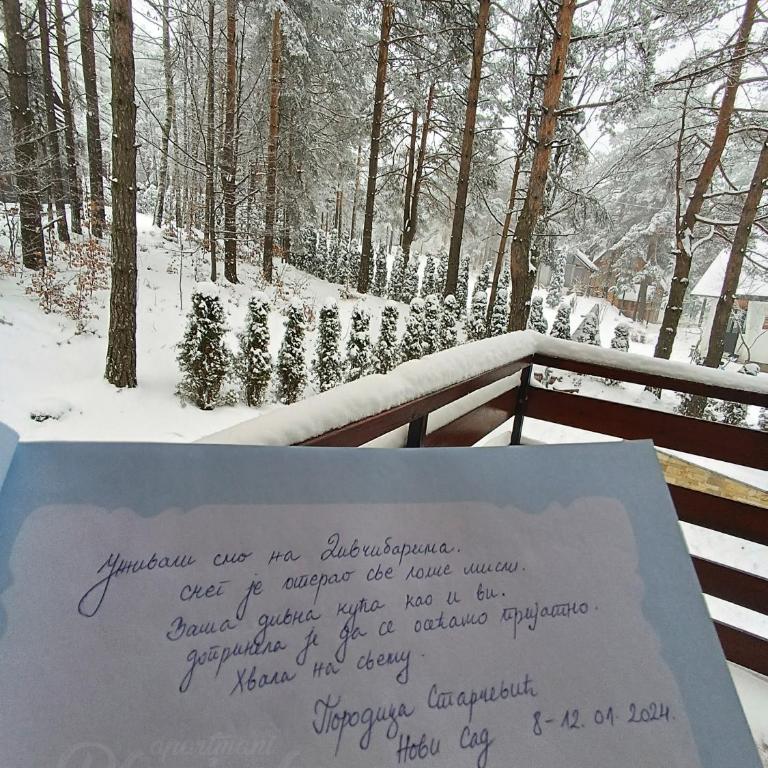 Уживали смо на Дивчибарима.
Снег је отерао све лоше мисли.
Ваша дивна кућа као и ви.
допринела је да се осећамо пријатно.
Хвала на свему.
Породица Старчевић
Нови Сад 8-12.01.2024.
apartmani